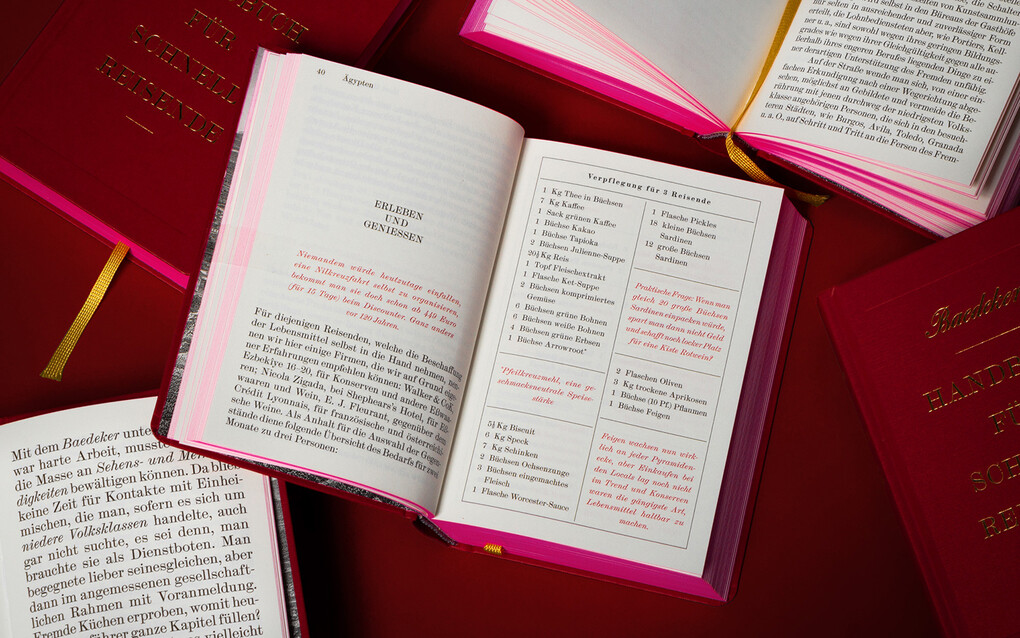 FÜR
SCHNELL
REISENDE
40 Ägypten
ERLEBEN
UND
GENIESSEN
Niemandem würde heutzutage einfallen,
eine Nilkreuzfahrt selbst zu organisieren,
bekommt man sie doch schon ab 440 Euro
(für 15 Tage) beim Discounter. Ganz anders
vor 120 Jahren.
Für diejenigen Reisenden, welche die Beschaffung
der Lebensmittel selbst in die Hand nehmen, nen-
nen wir hier einige Firmen, die wir auf Grund eige-
ner Erfahrungen empfehlen können: Walker & Co.,
Ezbekîye 16–20, für Konserven und andere Eßwa-
ren; Nicola Zigada, bei Shephear's Hotel, für Eß-
waren und Wein, E. J. Fleurant, gegenüber dem
Crédit Lyonnais, für französische und österreichi-
sche Weine. Als Anhalt für die Auswahl der Gegen-
stände diene folgende Übersicht des Bedarfs für zwei
Monate zu drei Personen:
Verpflegung für 3 Reisende
1 Kg Thee in Büchsen
7 Kg Kaffee
1 Sack grünen Kaffee
1 Büchse Kakao
1 Büchse Tapioka
2 Büchsen Julienne-Suppe
20½ Kg Reis
1 Topf Fleischextrakt
1 Flasche Ket-Suppe
2 Büchsen komprimiertes
Gemüse
6 Büchsen grüne Bohnen
6 Büchsen weiße Bohnen
4 Büchsen grüne Erbsen
1 Büchse Arrowroot*
*Pfeilkreuzmehl, eine ge-
schmacksneutrale Speise-
stärke
5½ Kg Biscuit
6 Kg Speck
7 Kg Schinken
2 Büchsen Ochsenzunge
3 Büchsen eingemachtes
Fleisch
1 Flasche Worcester-Sauce
1 Flasche Pickles
18 kleine Büchsen
Sardinen
12 große Büchsen
Sardinen
Praktische Frage: Wenn man
gleich 20 große Büchsen
Sardinen einpacken würde,
spart man dann nicht Geld
und schafft noch locker Platz
für eine Kiste Rotwein?
2 Flaschen Oliven
3 Kg trockene Aprikosen
1 Büchse (10 Pf.) Pflaumen
1 Büchse Feigen
Feigen wachsen nun wirk-
lich an jeder Pyramiden-
ecke, aber Einkaufen bei
den Locals lag noch nicht
im Trend und Konserven
waren die gängigste Art,
Lebensmittel haltbar zu
machen.
von Kunstsammlun
selbst in den Büreaus der Gasthöfe
mur selten in ausreichender und zuverlässiger Form
erteilt, die Lohnbediensteten aber, wie Portiers, Kell-
ner u. a., sind sowohl wegen ihres geringen Bildungs-
grades wie wegen ihrer Gleichgültigkeit gegen alle au-
ßerhalb ihres engeren Berufes liegenden Dinge zu ei-
ner derartigen Unterstützung des Fremden unfähig.
Auf der Straße wende man sich, von einer ein-
fachen Erkundigung nach einer Wegerichtung abge-
sehen, möglichst an Gebildete und vermeide die Be-
rührung mit jenen durchweg der niedrigsten Volks-
klasse angehörigen Personen, die sich in den besuch-
teren Städten, wie Burgos, Avila, Toledo, Granada
u. a. O., auf Schritt und Tritt an die Fersen des Frem-
Mit dem Baedeker unte
war harte Arbeit, musste
die Masse an Sehens- und Mer
digkeiten bewältigen können. Da blieb
keine Zeit für Kontakte mit Einhei-
mischen, die man, sofern es sich um
niedere Volksklassen handelte, auch
gar nicht suchte, es sei denn, man
brauchte sie als Dienstboten. Man
begegnete lieber seinesgleichen, aber
dann im angemessenen gesellschaft-
lichen Rahmen mit Voranmeldung.
Fremde Küchen erproben, womit heu-
führer ganze Kapitel füllen?
vielleicht
Baedeker
HANDB
FÜ
SCH
RE